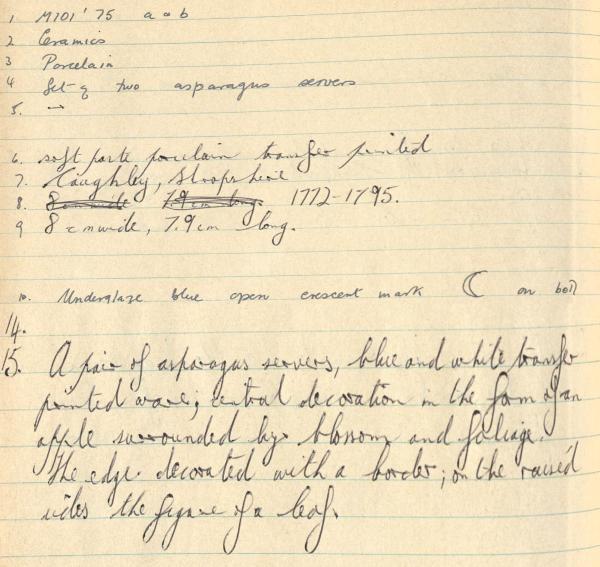 1 M101 '75 a & b
2 Ceramics
3 Porcelain
4 Set of two asparagus servers
5. —
6. soft paste porcelain transfer printed
7. Caughley, Shropshire
8. 8 cm wide 7.9 cm long. 1772-1795.
9 8 cm wide, 7.9 cm long.
10. Underglaze blue open crescent mark on both
14.
15. A pair of asparagus servers, blue and white transfer
printed ware; central decoration in the form of an
apple surrounded by blossom and foliage.
The edge decorated with a border; on the raised
sides the figure of a leaf.